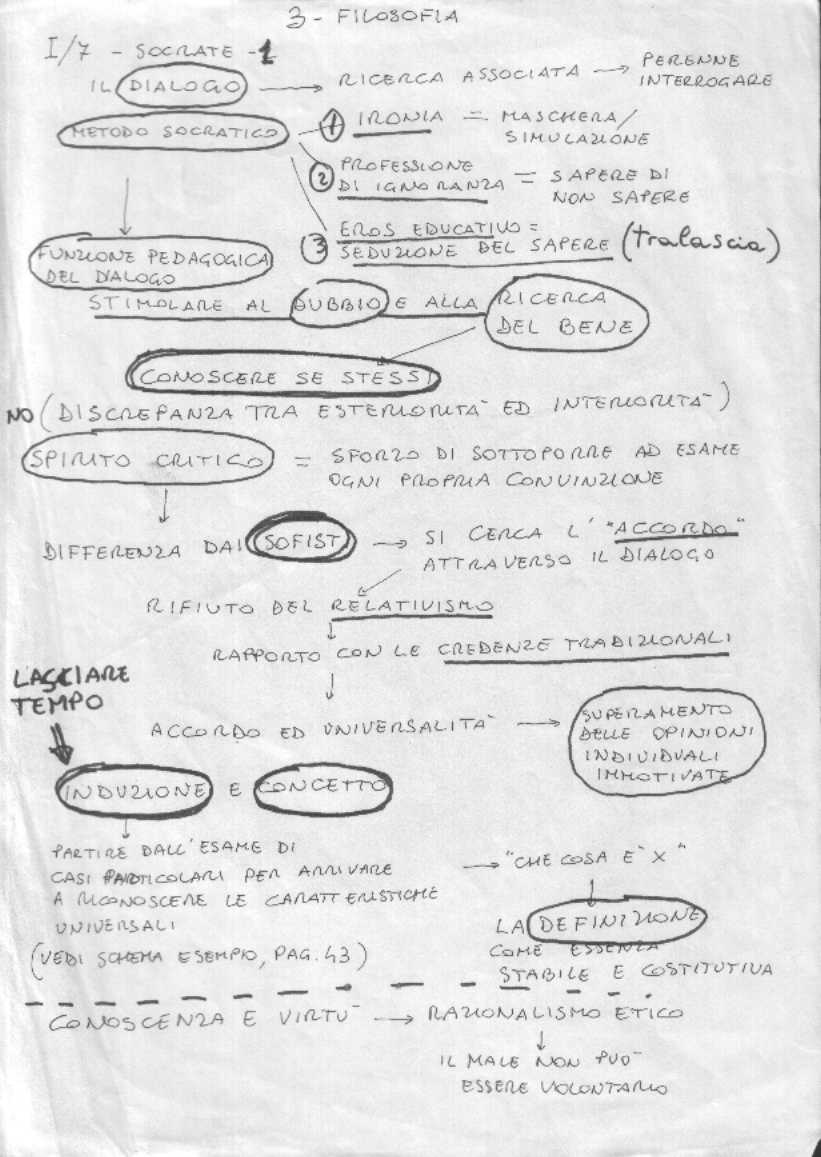 3 - FILOSOFIA
I/7 - SOCRATE - 1
IL DIALOGO → RICERCA ASSOCIATA → PERENNE
INTERROGARE
METODO SOCRATICO
1 IRONIA = MASCHERA/
SIMULAZIONE
2 PROFESSIONE
DI IGNORANZA = SAPERE DI
NON SAPERE
3 EROS EDUCATIVO =
SEDUZIONE DEL SAPERE (tralascia)
FUNZIONE PEDAGOGICA
DEL DIALOGO
STIMOLARE AL DUBBIO E ALLA RICERCA
DEL BENE
CONOSCERE SE STESSI
NO (DISCREPANZA TRA ESTERIORITA' ED INTERIORITA')
SPIRITO CRITICO = SFORZO DI SOTTOPORRE AD ESAME
OGNI PROPRIA CONVINZIONE
DIFFERENZA DAI SOFISTI → SI CERCA L' "ACCORDO"
ATTRAVERSO IL DIALOGO
RIFIUTO DEL RELATIVISMO
RAPPORTO CON LE CREDENZE TRADIZIONALI
LASCIARE
TEMPO
ACCORDO ED UNIVERSALITA' → SUPERAMENTO
DELLE OPINIONI
INDIVIDUALI
IMMOTIVATE
INDUZIONE E CONCETTO
PARTIRE DALL'ESAME DI
CASI PARTICOLARI PER ARRIVARE
A RICONOSCERE LE CARATTERISTICHE
UNIVERSALI
(VEDI SCHEMA ESEMPIO, PAG. 43)
→ "CHE COSA E' X"
LA DEFINIZIONE
COME ESSENZA
STABILE E COSTITUTIVA
CONOSCENZA E VIRTU' → RAZIONALISMO ETICO
IL MALE NON PUO'
ESSERE VOLONTARIO